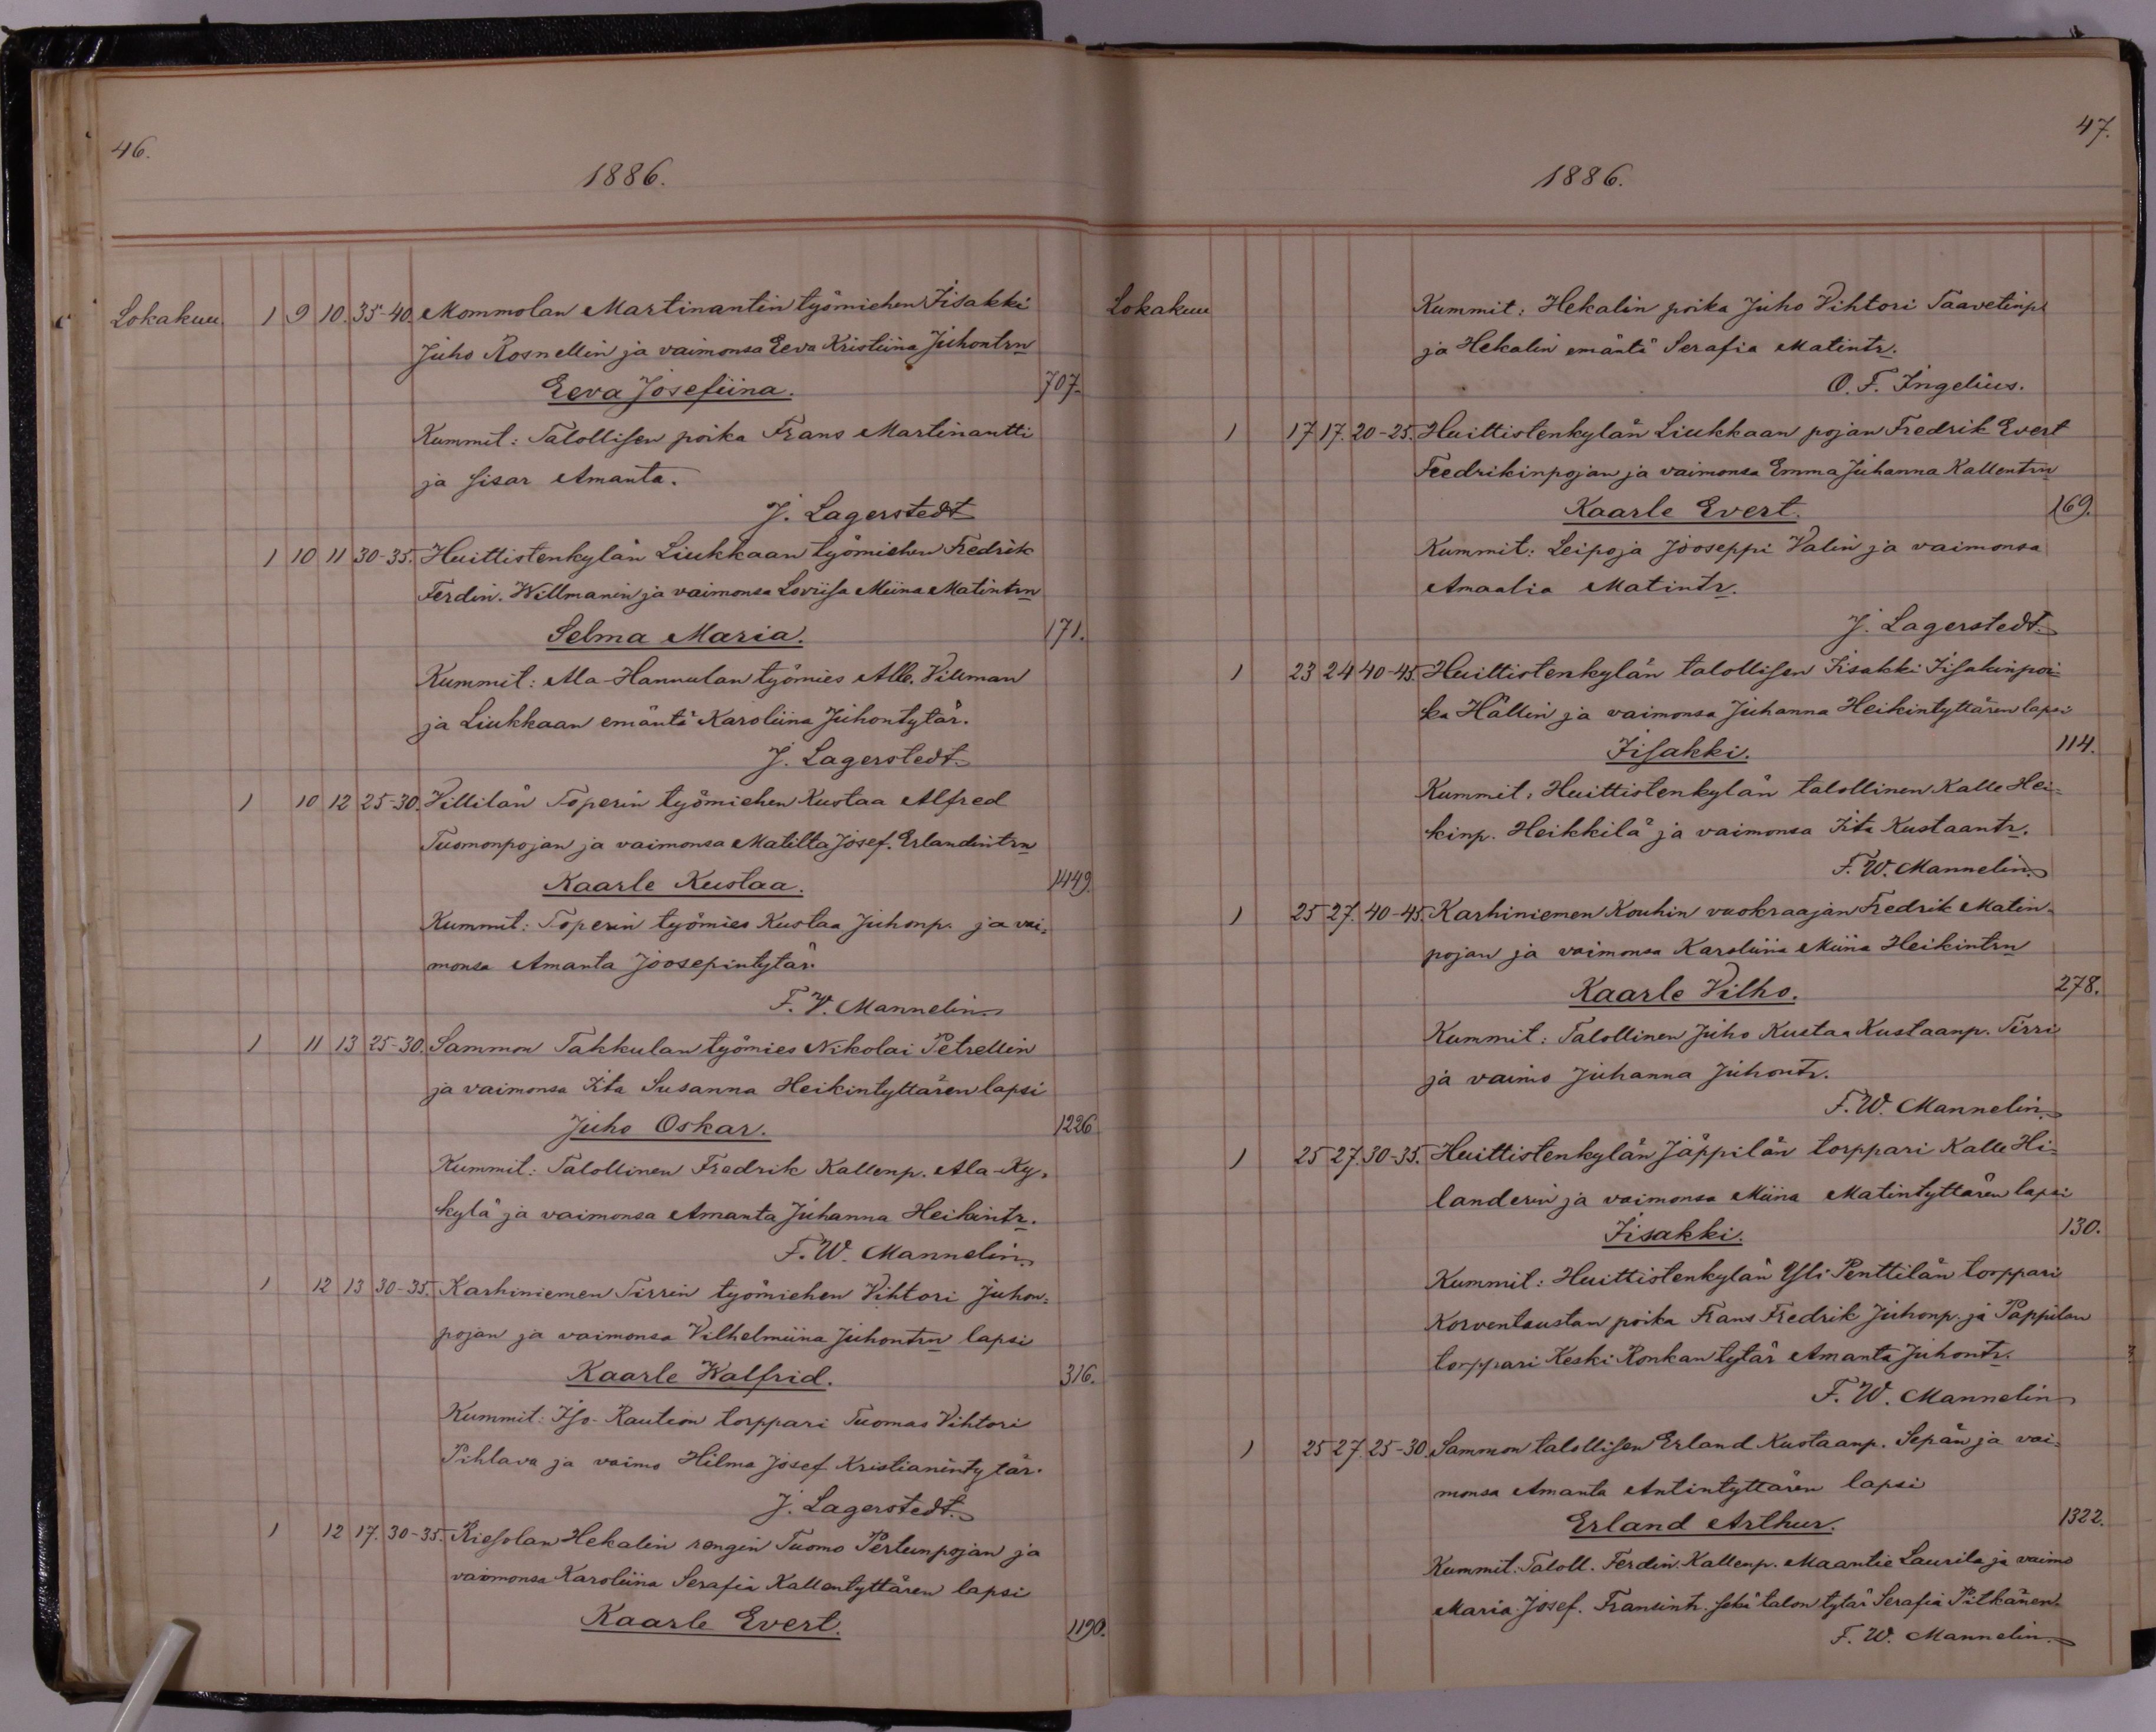 46.
1886.
Lokakuu 1 9 10. 35-40. Mommolan Martinantin työmiehen Iisakki
Juho Rosnellin ja vaimonsa Eeva Kristiina Juhontrn
Eeva Josefiina. 707.
Kummit: Talollisen poika Frans Martinantti
ja sisar Amanta.
J. Lagerstedt
1 10 11 30-35. Huittistenkylän Liukkaan työmiehen Fredrik
Ferdin. Willmanin ja vaimonsa Loviisa Miina Matintrn
Selma Maria. 171.
Kummit: Ala-Hannulan työmies Alb. Villman
ja Liukkaan emäntä Karoliina Juhontytär.
J. Lagerstedt.
1 10 12 25-30. Villilän Toperin työmiehen Kustaa Alfred
Tuomonpojan ja vaimonsa Matilta Josef. Erlandintrn
Kaarle Kustaa. 1449.
Kummit: Toperin työmies Kustaa Juhonp. ja vai-
monsa Amanta Joosepintytär.
F. V. Mannelin
1 11 13 25-30. Sammon Takkulan työmies Nikolai Petrellin
ja vaimonsa Iita Susanna Heikintyttären lapsi
Juho Oskar. 1226
Kummit: Talollinen Fredrik Kallenp. Ala-Ky-
kylä ja vaimonsa Amanta Juhanna Heikintr.
F. W. Mannelin.
1 12 13 30-35. Karhiniemen Tirrin työmiehen Vihtori Juhon-
pojan ja vaimonsa Vilhelmiina Juhontrn lapsi
Kaarle Walfrid. 316.
Kummit: Iso-Raution torppari Tuomas Vihtori
Pihlava ja vaimo Hilma Josef Kristianintytär.
J. Lagerstedt.
1 12 17. 30-35. Riesolan Hekalin rengin Tuomo Pertunpojan ja
vaimonsa Karoliina Serafia Kallentyttären lapsi
Kaarle Evert. 1190.
47.
1886.
Lokakuu Kummit: Hekalin poika Juho Vihtori Taavetinp.
ja Hekalin emäntä Serafia Matintr.
O. F. Ingelius.
1 17 17. 20-25. Huittistenkylän Liukkaan pojan Fredrik Evert
Fredrikinpojan ja vaimonsa Emma Juhanna Kallentrn
Kaarle Evert. 169.
Kummit: Leipoja Jooseppi Valin ja vaimonsa
Amaalia Matintr.
J. Lagerstedt.
1 23 24 40-45. Huittistenkylän talollisen Iisakki Iisakinpoi-
ka Hällin ja vaimonsa Juhanna Heikintyttären lapsi
Iisakki. 114.
Kummit: Huittistenkylän talollinen Kalle Hei-
kinp. Heikkilä ja vaimonsa Iita Kustaantr.
F. W. Mannelin.
1 25 27. 40-45. Karhiniemen Kouhin vuokraajan Fredrik Matin-
pojan ja vaimonsa Karoliina Miina Heikintrn
Kaarle Vilho. 278.
Kummit: Talollinen Juho Kustaa Kustaanp. Tirri
ja vaimo Juhanna Juhontr.
F. W. Mannelin.
1 25 27. 30-35. Huittistenkylän Jäppilän torppari Kalle Hi-
landerin ja vaimonsa Miina Matintyttären lapsi
Iisakki. 130.
Kummit: Huittistenkylän Yli Penttilän torppari
Korventaustan poika Frans Fredrik Juhonp. ja Pappilan
torppari Keski Ronkan tytär Amanta Juhontr.
F. W. Mannelin
1 25 27. 25-30. Sammon talollisen Erland Kustaanp. Sepän ja vai-
monsa Amanta Antintyttären lapsi
Erland Arthur. 1322.
Kummit: Taloll. Ferdin. Kallenp. Maantie Laurila ja vaimo
Maria Josef. Fransintr. sekä talon tytär Serafia Pitkänen.
F. W. Mannelin.